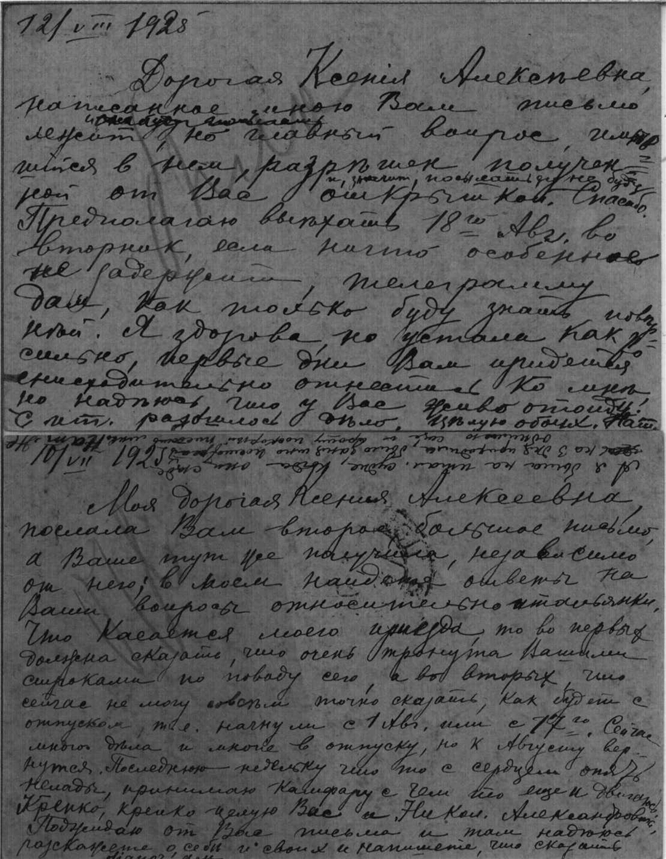 12/VIII 1925
Дорогая Ксенія Алексѣевна,
написанное мною Вам письмо
лежит, но главный вопрос, имѣю-
щійся в нем, разрѣшен получен
и, значит, посылать его не буду
ной от Вас открыткой. Спасибо.
Предполагаю выѣхать 18го Авг. во
вторник, если ничто особенное
не задержит, телеграмму
дам, как только буду знать
Я здорова, но устала как
сильно, первые дни Вам придется
снисходительно относиться ко мнѣ,
но надѣюсь что у Вас живо отойду.
С ит. разошлось дѣло. Цѣлую обоих. Нат.
10/VII 1925
Моя дорогая Ксения Алексеевна,
послала Вам второе большое письмо,
а Ваше тут же получила, независимо
от него; в моем найдете ответы на
Ваши вопросы относительно итальянки.
Что касается моего приезда, то во первых
должна сказать, что очень тронута Вашими
строками по поводу сего, а во вторых, что
сейчас не могу совсѣм точно сказать, как будет с
отпуском, т.е. начну ли с 1 Авг. или с 17го. Сейчас
много дѣла и многие в отпуску, но к Августу вер-
нутся. Последнюю недельку что то с сердцем опять
нелады, принимаю камфару с чем то еще и
Крепко, крепко целую Вас и Никол. Александровича.
Поджидаю от Вас письма и там надѣюсь
расскажете о себе и своих и напишете, что сказать